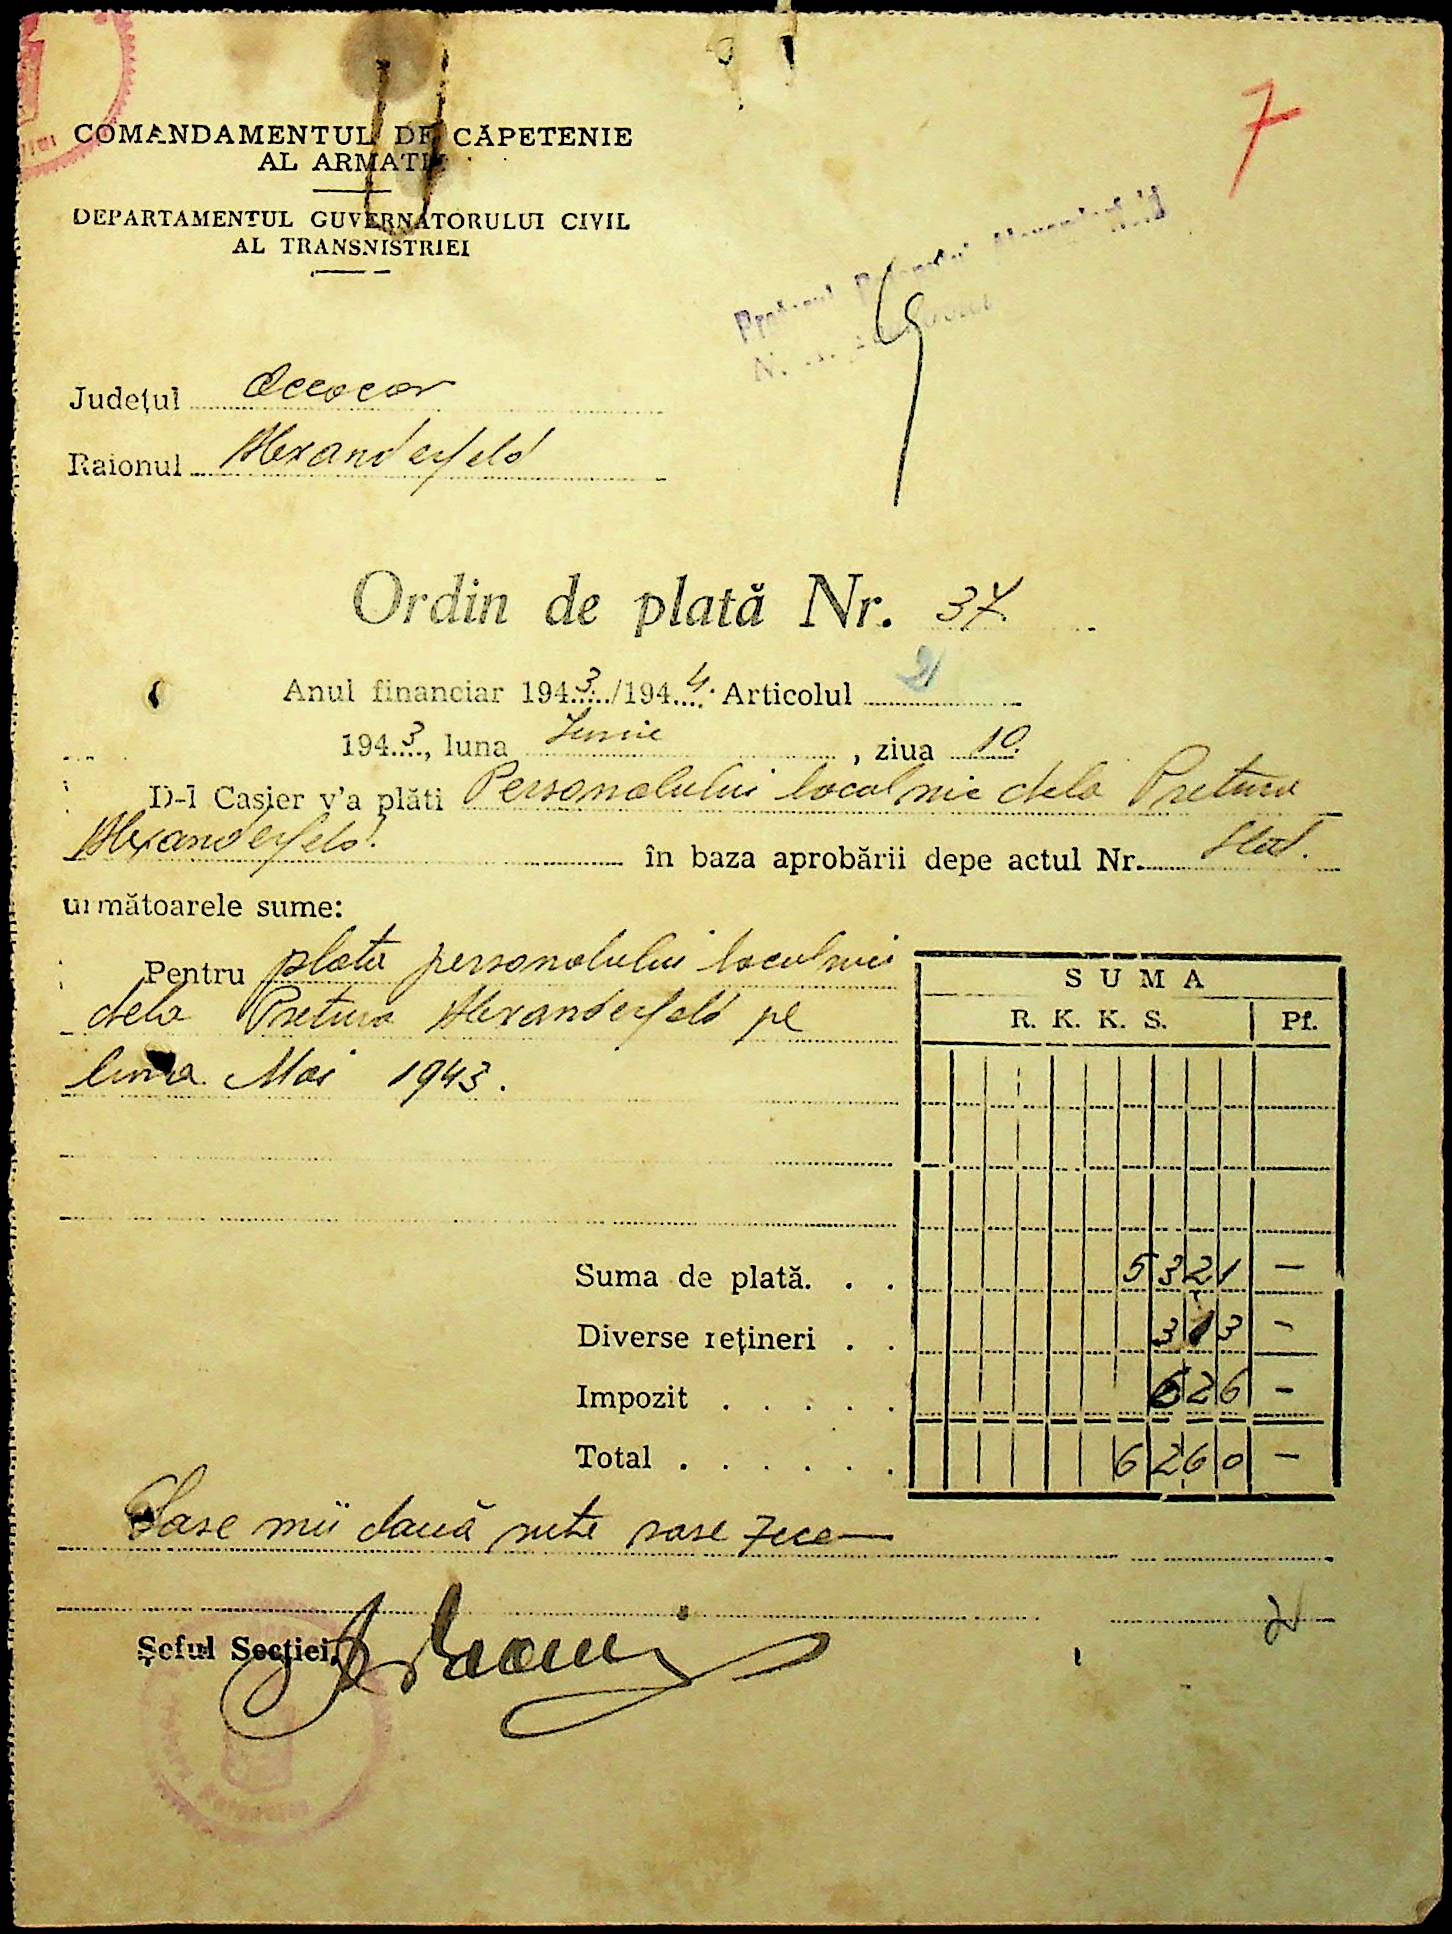 7
COMANDAMENTUL DE CĂPETENIE
AL ARMATEI
DEPARTAMENTUL GUVERNATORULUI CIVIL
AL TRANSNISTRIEI
Județul Oceacov
Raionul Alexanderfeld
Ordin de plată Nr. 37
Anul financiar 1943/1944. Articolul 21
1943, luna Iunie, ziua 10.
D-l Casier v'a plăti Personalului localnic dela Pretura
Alexanderfeld. în baza aprobării depe actul Nr. Stat.
următoarele sume:
Pentru plata personalului localnic
dela Pretura Alexanderfeld pe
luna Mai 1943.
SUMA
R. K. K. S. Pf.
Suma de plată. . . 5321 —
Diverse rețineri . . 313 -
Impozit . . . . . 626 -
Total . . . . . . 6260 —
Șase mii două sute șase zece
Șeful Secției,